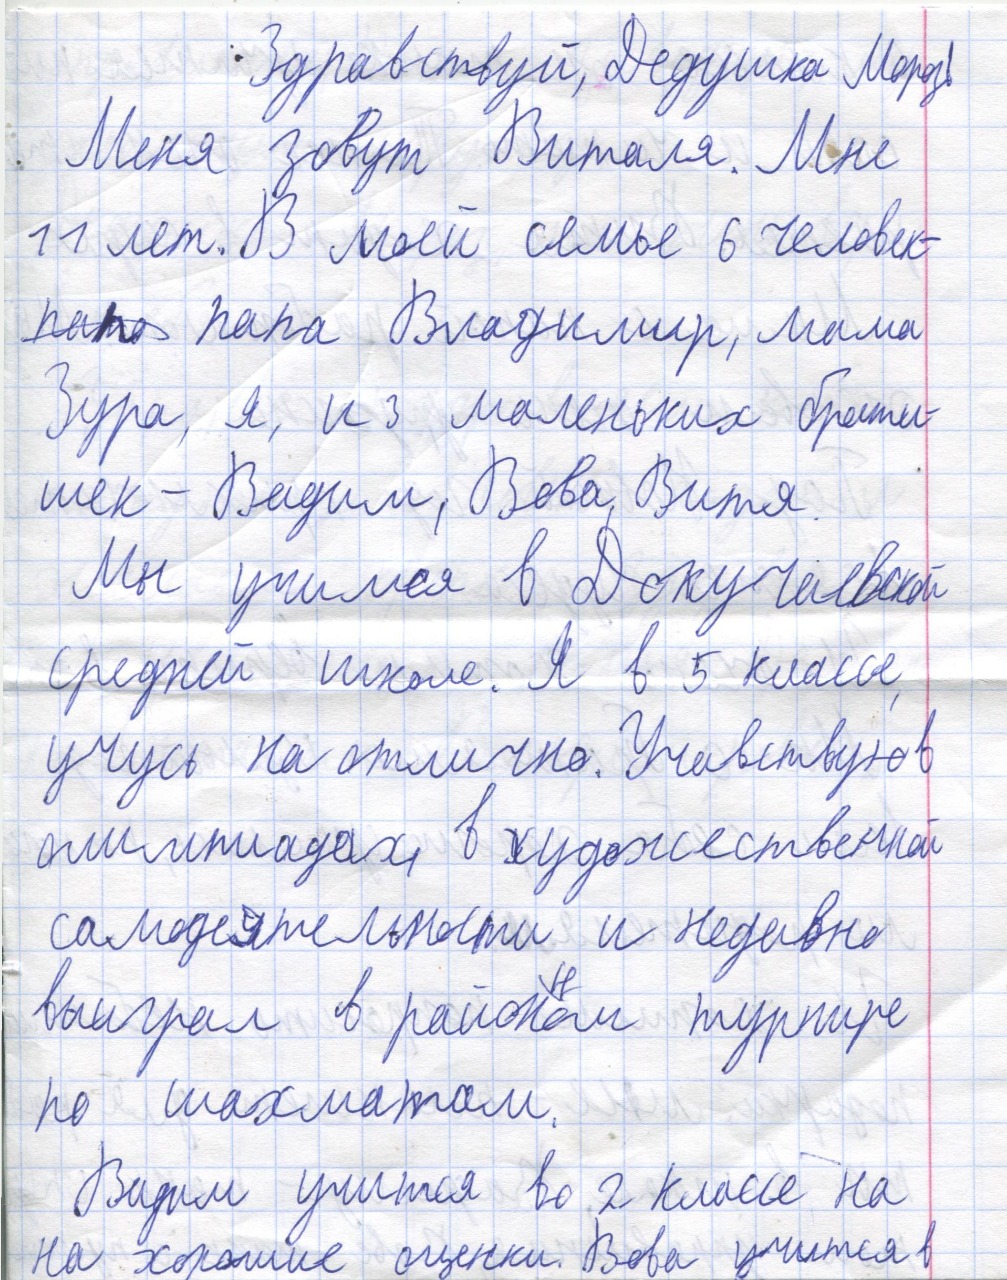 Здравствуй, Дедушка Мороз!
Меня зовут Виталя. Мне
11 лет. В моей семье 6 человек-
папа Владимир, мама
Зура, я, и 3 маленьких брати-
шек - Вадим, Вова, Витя.
Мы учимся в Докучаевской
средней школе. Я в 5 классе,
учусь на отлично. Учавствую в
олимпиадах, в художественной
самодеятельности и недавно
выиграл в районном турнире
по шахматам.
Вадим учится во 2 классе на
на хорошие оценки. Вова учится в